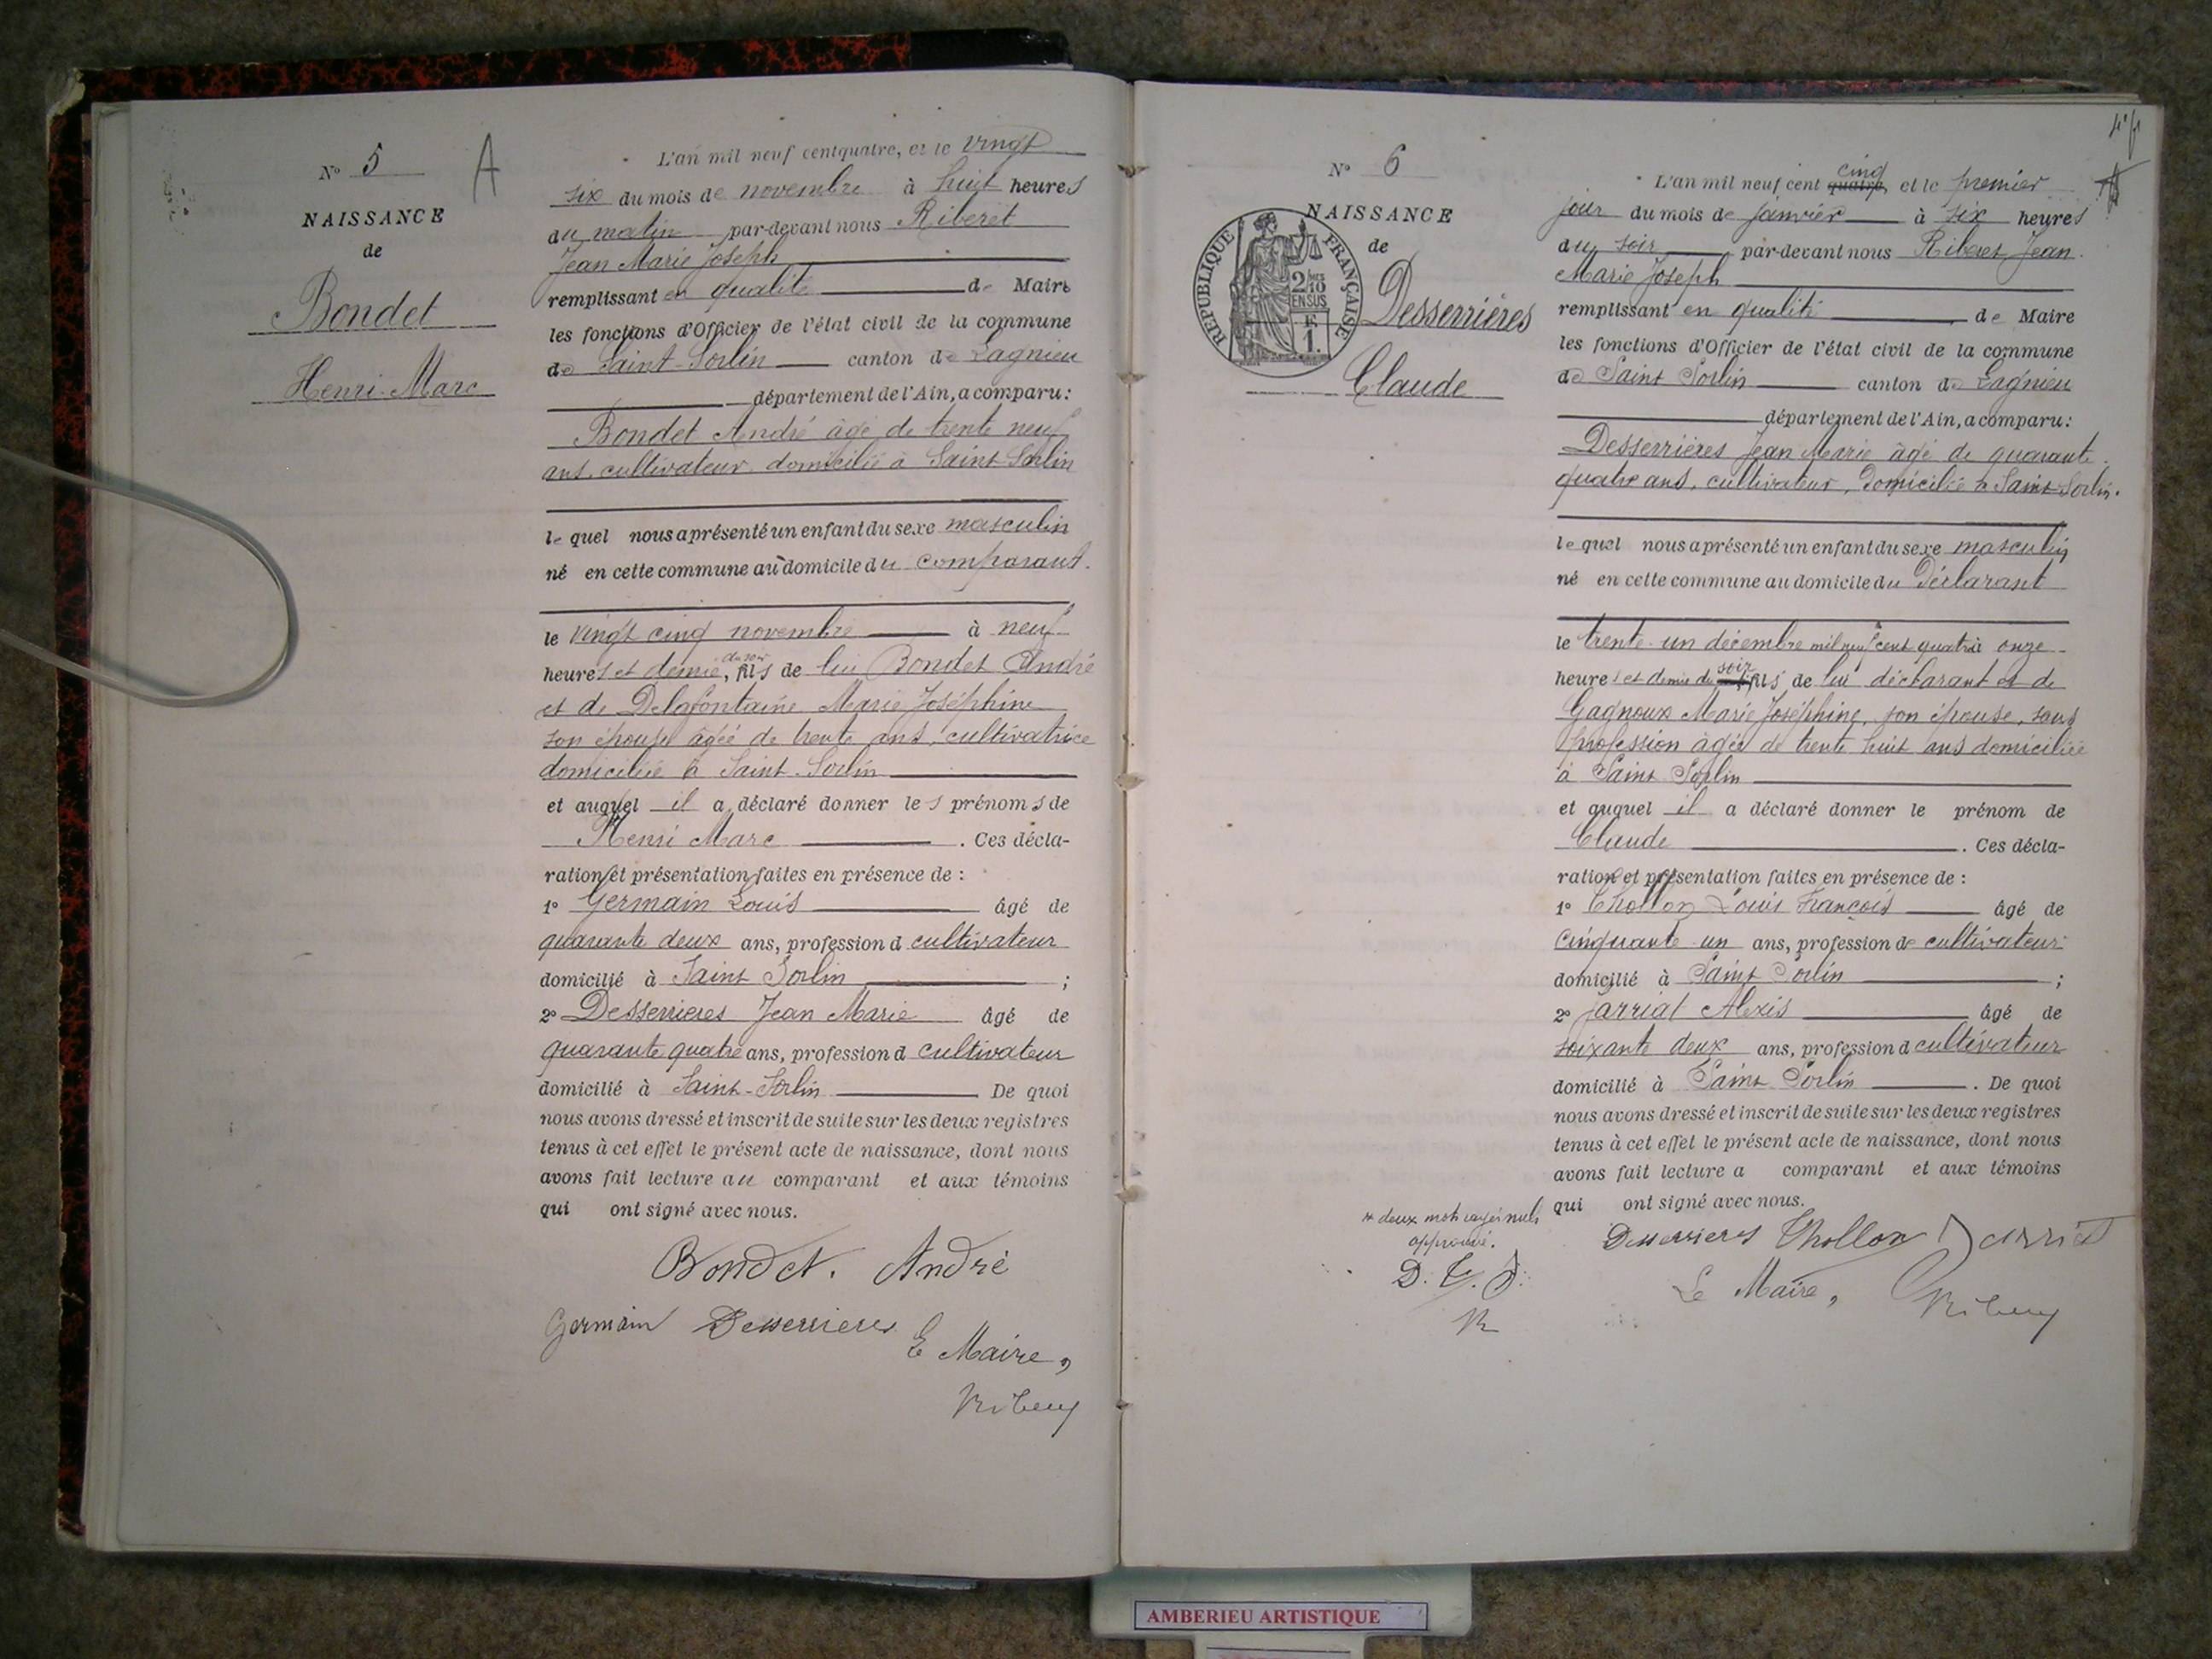 N° 5
A
NAISSANCE
de
Bondet
Henri-Marc
L'an mil neuf cent quatre, et le vingt
six du mois de novembre à huit heures
du matin par-devant nous Riberet
Jean Marie Joseph
remplissant en qualité de Maire
les fonctions d'Officier de l'état civil de la commune
de Saint-Sorlin canton de Lagnieu
département de l'Ain, a comparu:
Bondet André âgé de trente neuf
ans, cultivateur domicilié à Saint-Sorlin
le quel nous a présenté un enfant du sexe masculin
né en cette commune au domicile du comparant.
le vingt cinq novembre à neuf
du soir
heures et demie, fils de lui Bondet André
et de Delafontaine Marie Joséphine
son épouse âgée de trente ans, cultivatrice
domiciliée à Saint-Sorlin
et auquel il a déclaré donner les prénoms de
Henri Marc . Ces décla-
ration et présentation faites en présence de :
1° Germain Louis âgé de
quarante deux ans, profession d cultivateur
domicilié à Saint Sorlin ;
2° Desserrieres Jean Marie âgé de
quarante quatre ans, profession d cultivateur
domicilié à Saint-Sorlin De quoi
nous avons dressé et inscrit de suite sur les deux registres
tenus à cet effet le présent acte de naissance, dont nous
avons fait lecture au comparant et aux témoins
qui ont signé avec nous.
Bondet. André
Germain Desserrieres
Le Maire,
N° 6
NAISSANCE
de
RÉPUBLIQUE FRANÇAISE
2/10
EN SUS
1.
Desserrières
Claude
cinq
L'an mil neuf cent quatre, et le premier
jour du mois de janvier à six heures
du soir par-devant nous Riberet Jean
Marie Joseph
remplissant en qualité de Maire
les fonctions d'Officier de l'état civil de la commune
de Saint Sorlin canton de Lagnieu
département de l'Ain, a comparu:
Desserrières Jean Marie âgé de quarante
quatre ans, cultivateur, domicilié à Saint-Sorlin.
le quel nous a présenté un enfant du sexe masculin
né en cette commune au domicile du Déclarant
le trente-un décembre mil neuf cent quatre à onze
soir
heures et demie du fils de lui déclarant et de
Gagnoux Marie Joséphine, son épouse, sans
profession âgée de trente huit ans domiciliée
à Saint Sorlin
et auquel il a déclaré donner le prénom de
Claude . Ces décla-
ration et présentation faites en présence de :
1° Thollon Louis François âgé de
cinquante-un ans, profession de cultivateur
domicilié à Saint Sorlin ;
2° Jarriat Alexis âgé de
soixante deux ans, profession d cultivateur
domicilié à Saint Sorlin . De quoi
nous avons dressé et inscrit de suite sur les deux registres
tenus à cet effet le présent acte de naissance, dont nous
avons fait lecture a comparant et aux témoins
qui ont signé avec nous.
deux mots rayés nuls
approuvé.
D. T. J.
R
Desserrieres Thollon Jarriat
Le Maire,
AMBERIEU ARTISTIQUE